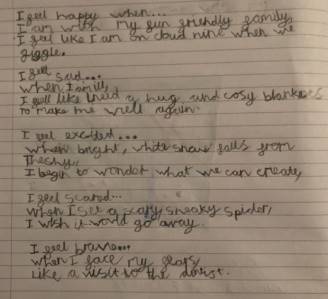 I feel happy when...
I am with my fun friendly family,
I feel like I am on cloud nine when we
giggle.
I feel sad...
when I am ill,
I feel like I need a hug and cosy blankets
to make me well again.
I feel excited...
when bright, white snow falls from
the sky,
I begin to wonder what we can create,
I feel scared...
when I see a scary, sneaky spider,
I wish it would go away.
I feel brave...
when I face my fears,
like a visit to the